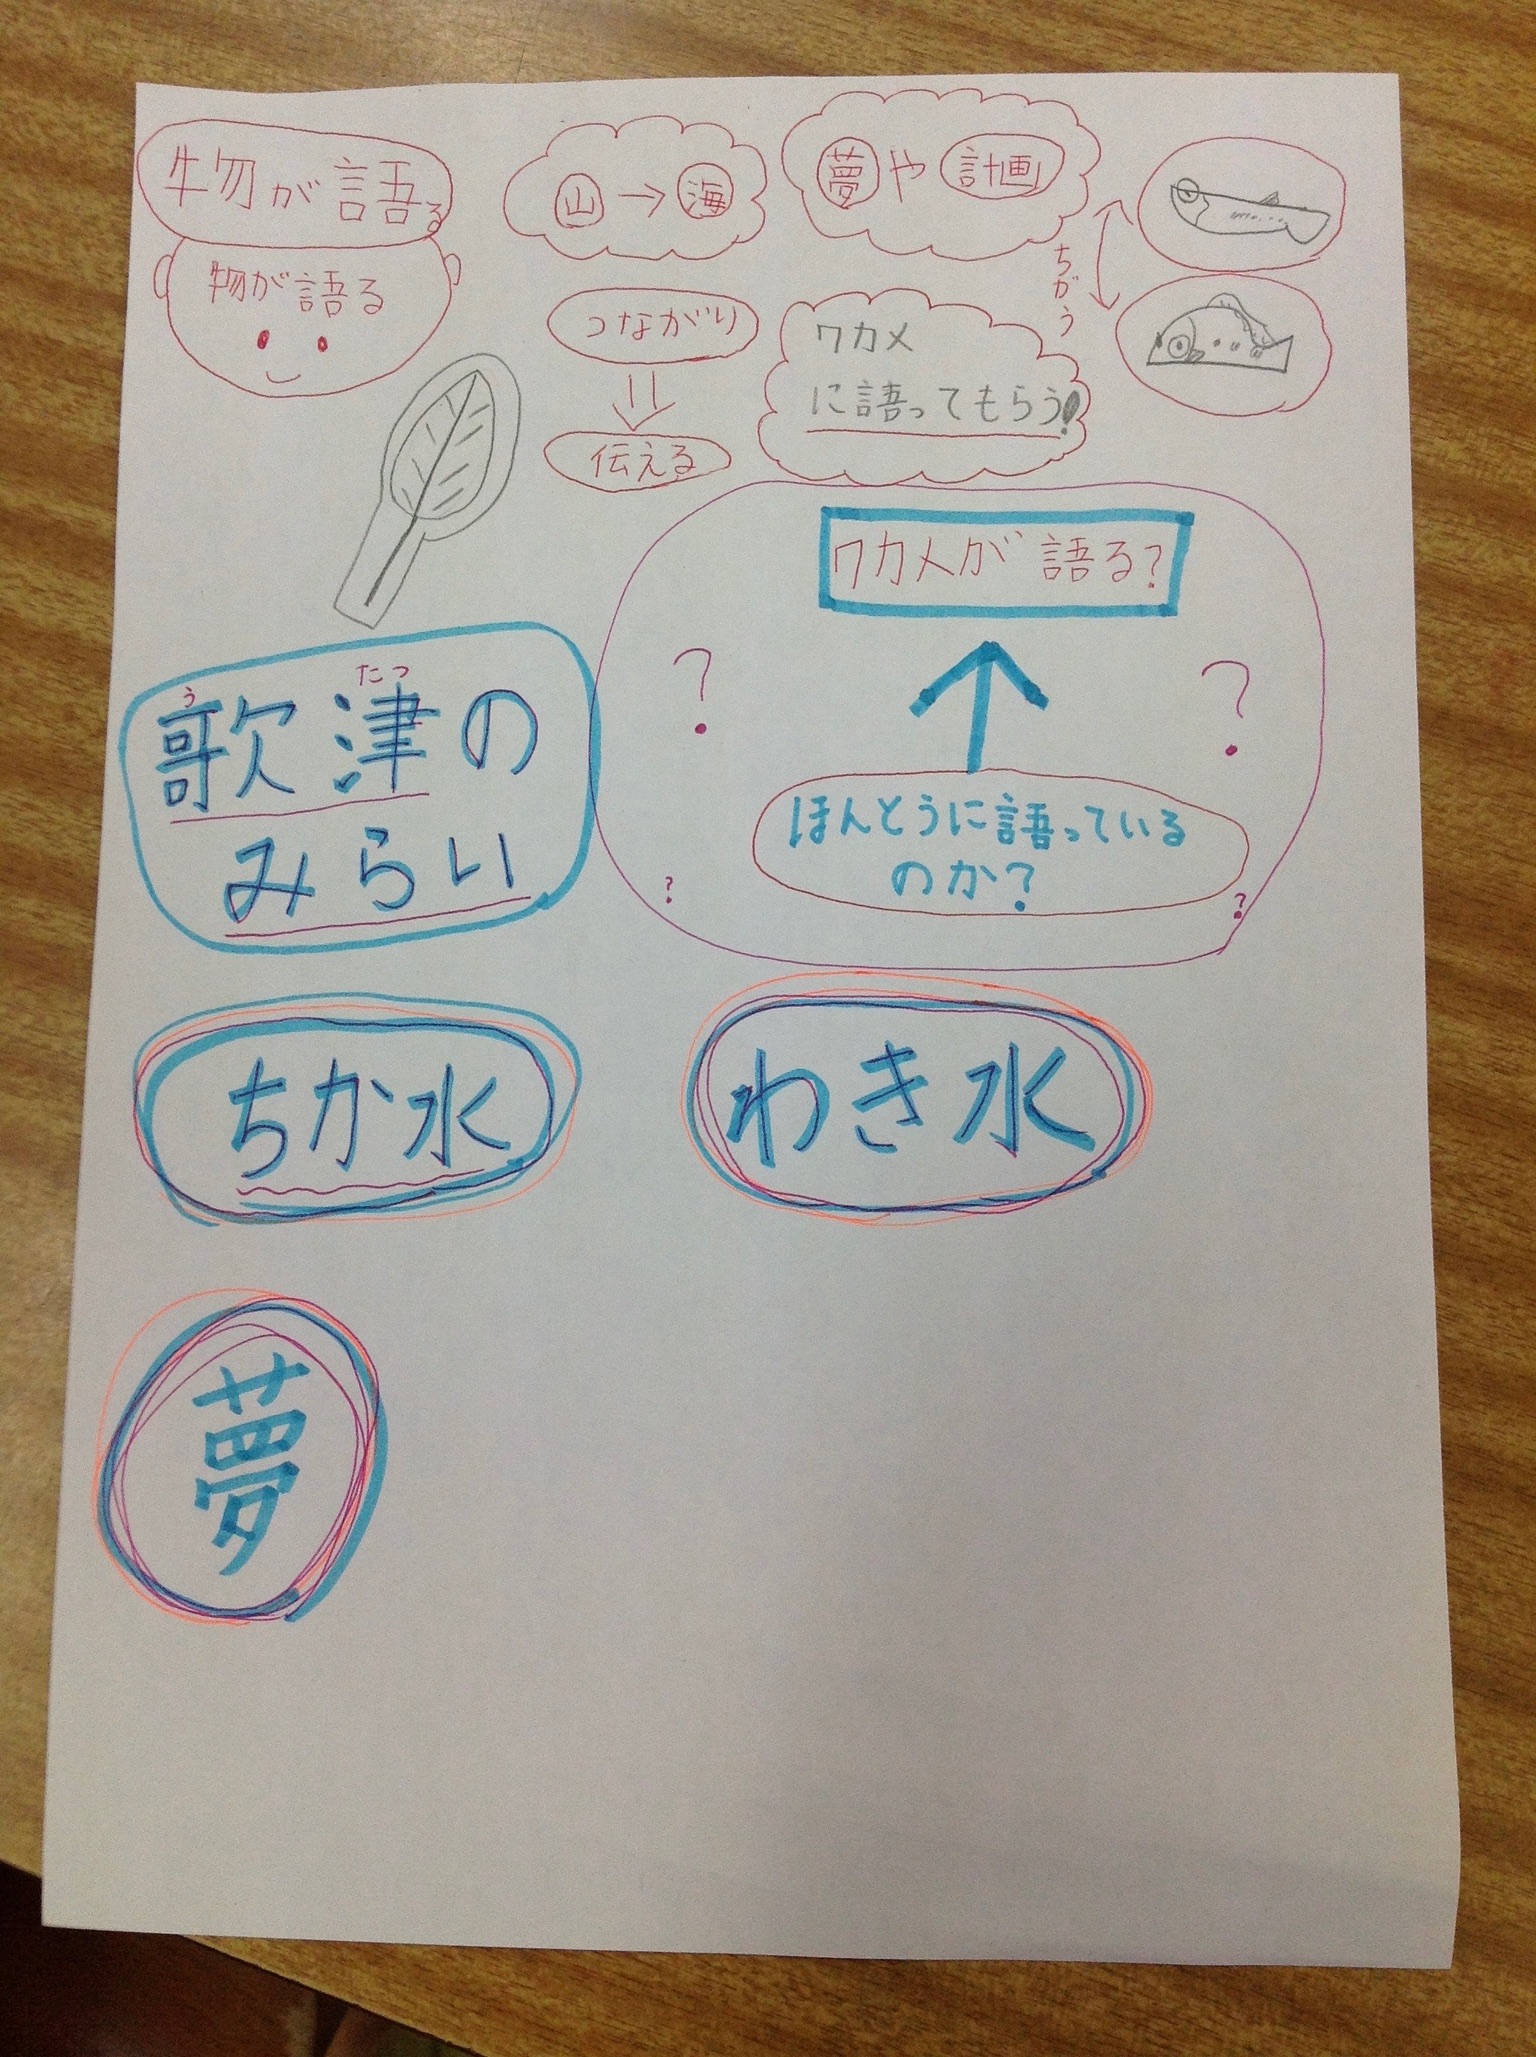 物が語る
物が語る
山→海
夢や計画
ちがう
つながり
伝える
ワカメ
に語ってもらう!
ワカメが語る?
?
?
ほんとうに語っている
のか?
?
?
うたつ
歌津の
みらい
ちか水
わき水
夢